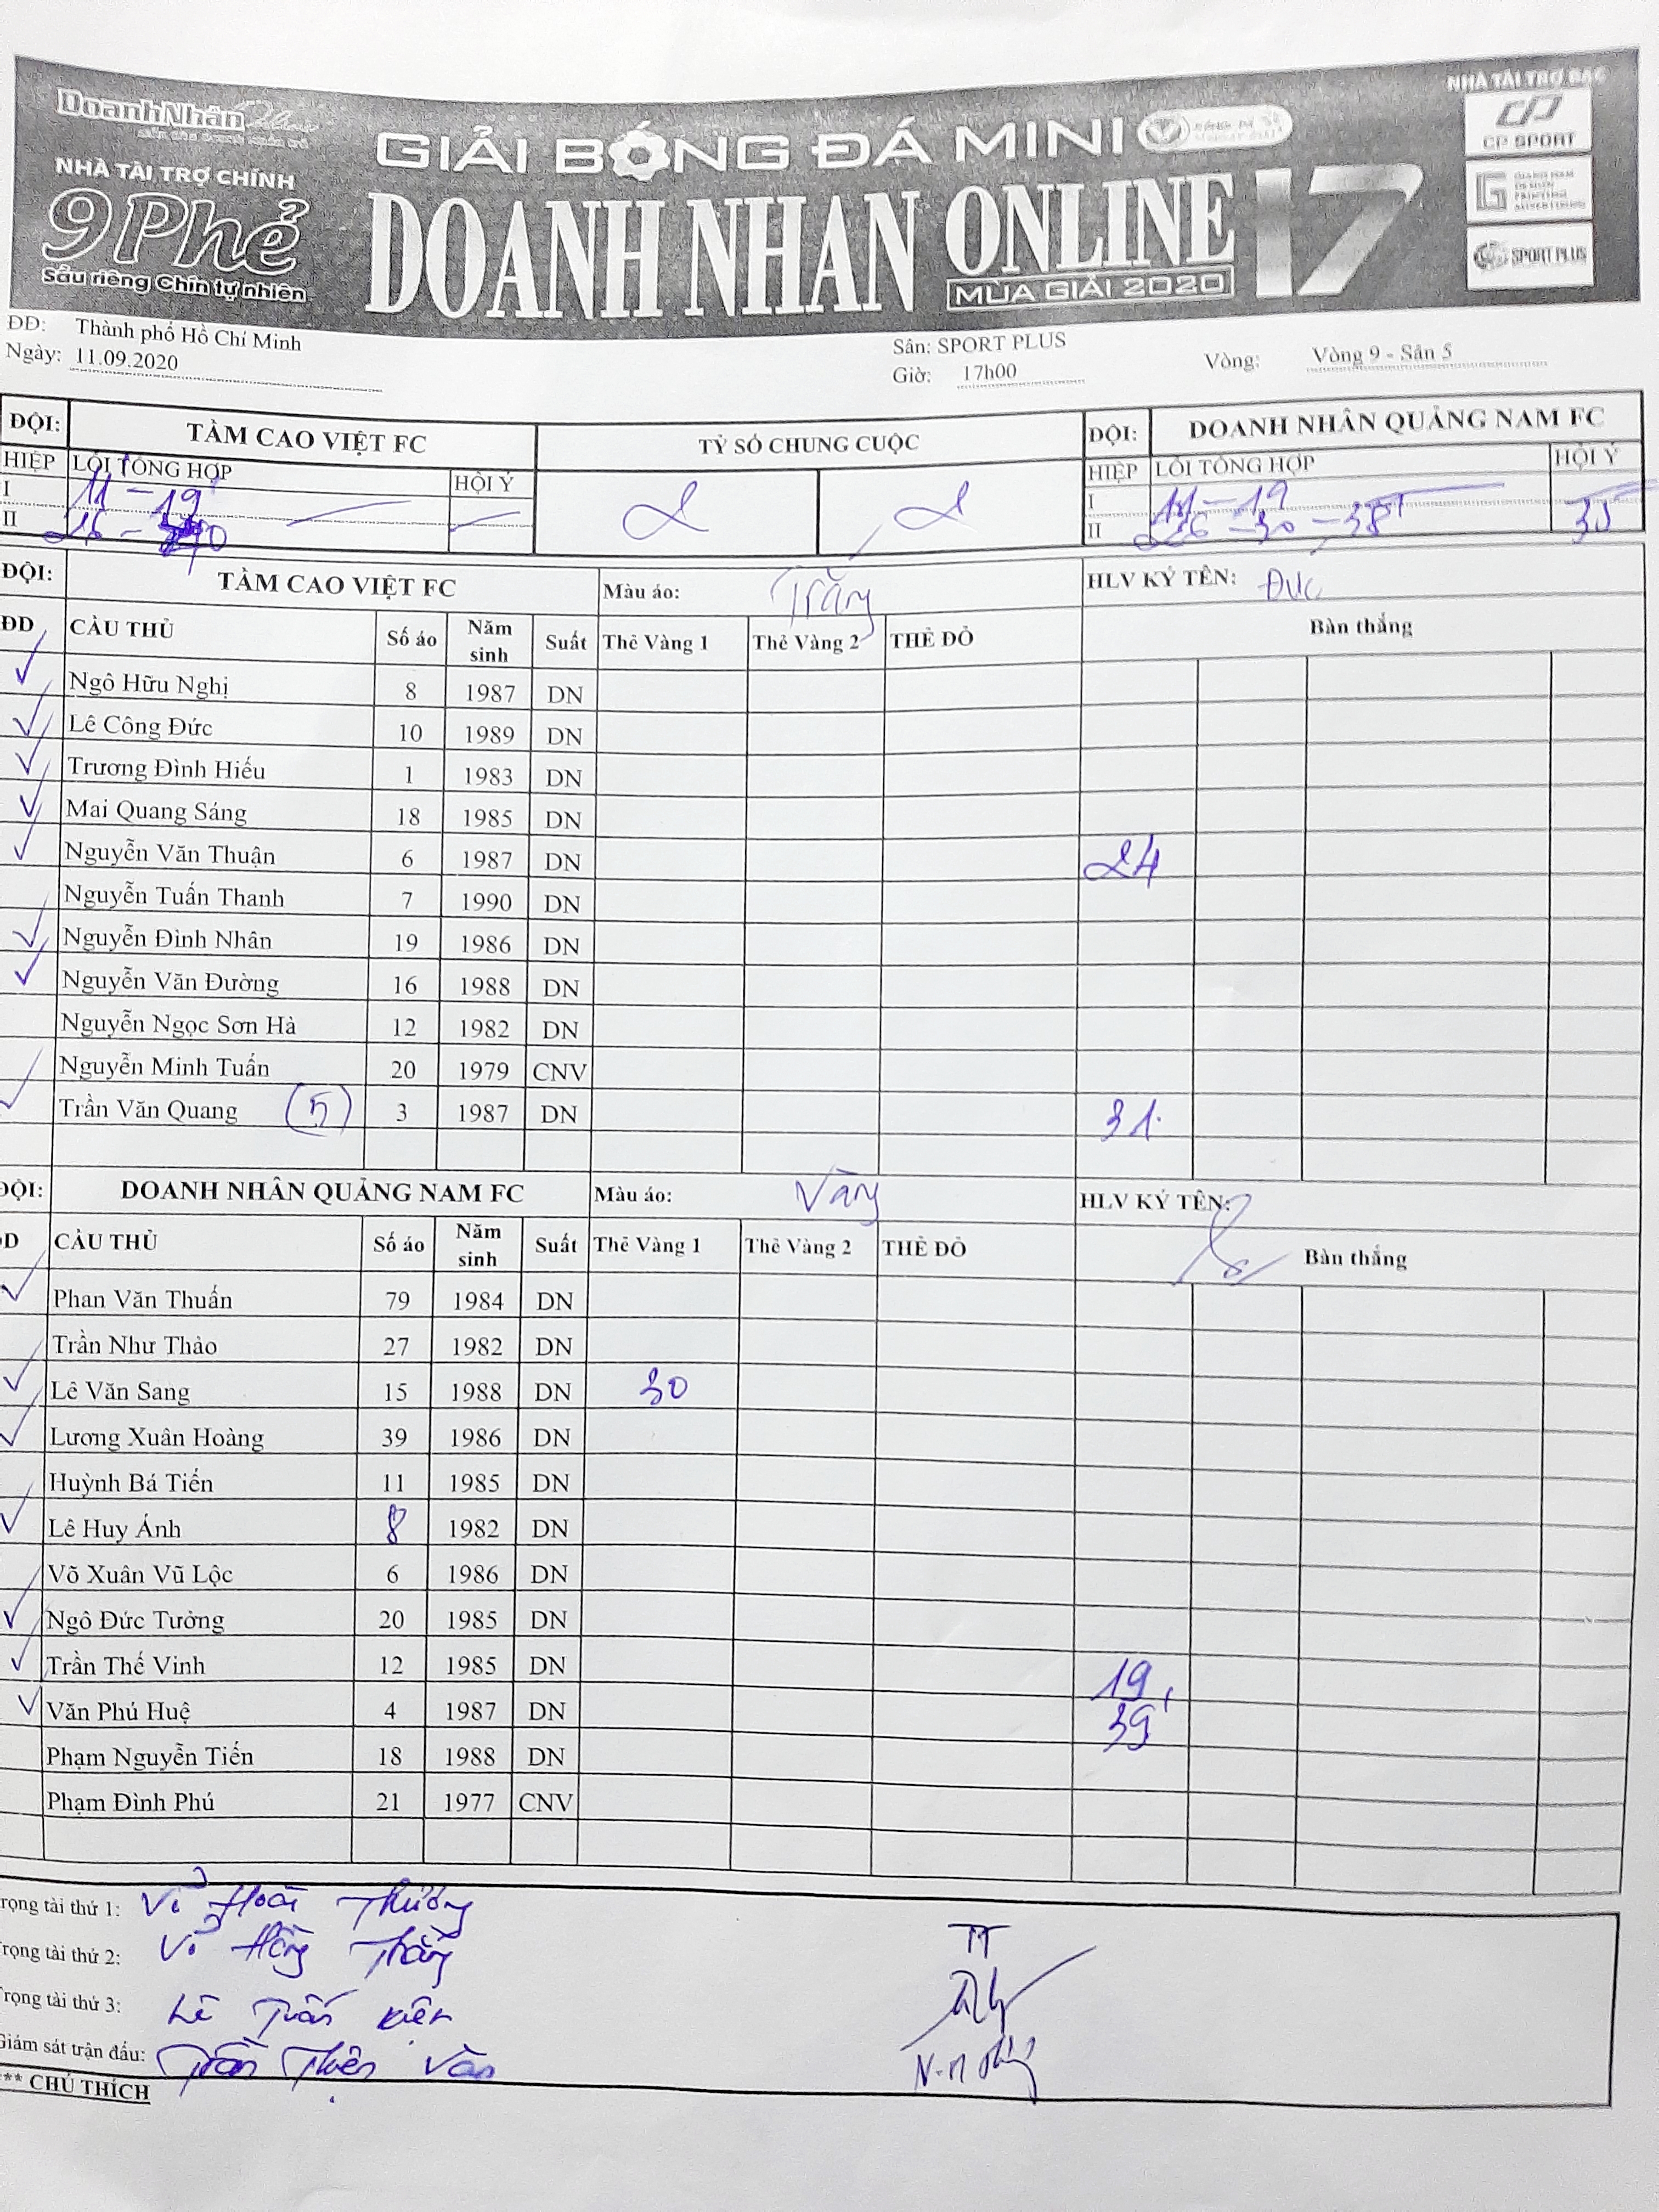 DoanhNhân
NHÀ TÀI TRỢ CHÍNH
9 Phẻ
Sầu riêng Chín tự nhiên
GIẢI BÓNG ĐÁ MINI
DOANH NHÂN ONLINE 17
MÙA GIẢI 2020
NHÀ TÀI TRỢ BẠC
CP SPORT
SPORT PLUS
ĐĐ: Thành phố Hồ Chí Minh
Ngày: 11.09.2020
Sân: SPORT PLUS
Giờ: 17h00
Vòng: Vòng 9 - Sân 5
ĐỘI: TẦM CAO VIỆT FC TỶ SỐ CHUNG CUỘC ĐỘI: DOANH NHÂN QUẢNG NAM FC
HIỆP LỖI TỔNG HỢP HỘI Ý HIỆP LỖI TỔNG HỢP HỘI Ý
I 11 - 19' 2 2 I 11 - 19
II 26 - II 26 - 30 - 38' 35
ĐỘI: TẦM CAO VIỆT FC Màu áo: Trắng HLV KÝ TÊN: Đức
ĐD CẦU THỦ Số áo Năm sinh Suất Thẻ Vàng 1 Thẻ Vàng 2 THẺ ĐỎ Bàn thắng
Ngô Hữu Nghị 8 1987 DN
Lê Công Đức 10 1989 DN
Trương Đình Hiếu 1 1983 DN
Mai Quang Sáng 18 1985 DN
Nguyễn Văn Thuận 6 1987 DN 24
Nguyễn Tuấn Thanh 7 1990 DN
Nguyễn Đình Nhân 19 1986 DN
Nguyễn Văn Đường 16 1988 DN
Nguyễn Ngọc Sơn Hà 12 1982 DN
Nguyễn Minh Tuấn 20 1979 CNV
Trần Văn Quang (5) 3 1987 DN 31
ĐỘI: DOANH NHÂN QUẢNG NAM FC Màu áo: Vàng HLV KÝ TÊN:
D CẦU THỦ Số áo Năm sinh Suất Thẻ Vàng 1 Thẻ Vàng 2 THẺ ĐỎ Bàn thắng
Phan Văn Thuấn 79 1984 DN
Trần Như Thảo 27 1982 DN
Lê Văn Sang 15 1988 DN 30
Lương Xuân Hoàng 39 1986 DN
Huỳnh Bá Tiến 11 1985 DN
Lê Huy Ánh 8 1982 DN
Võ Xuân Vũ Lộc 6 1986 DN
Ngô Đức Tưởng 20 1985 DN
Trần Thế Vinh 12 1985 DN 19
Văn Phú Huệ 4 1987 DN 39'
Phạm Nguyễn Tiến 18 1988 DN
Phạm Đình Phú 21 1977 CNV
rọng tài thứ 1: Võ Hoài Thương
rọng tài thứ 2: Võ Hồng Thắng
rọng tài thứ 3: Lê Tuấn Kiên
Giám sát trận đấu: Trần Thiên Văn
TT
** CHÚ THÍCH